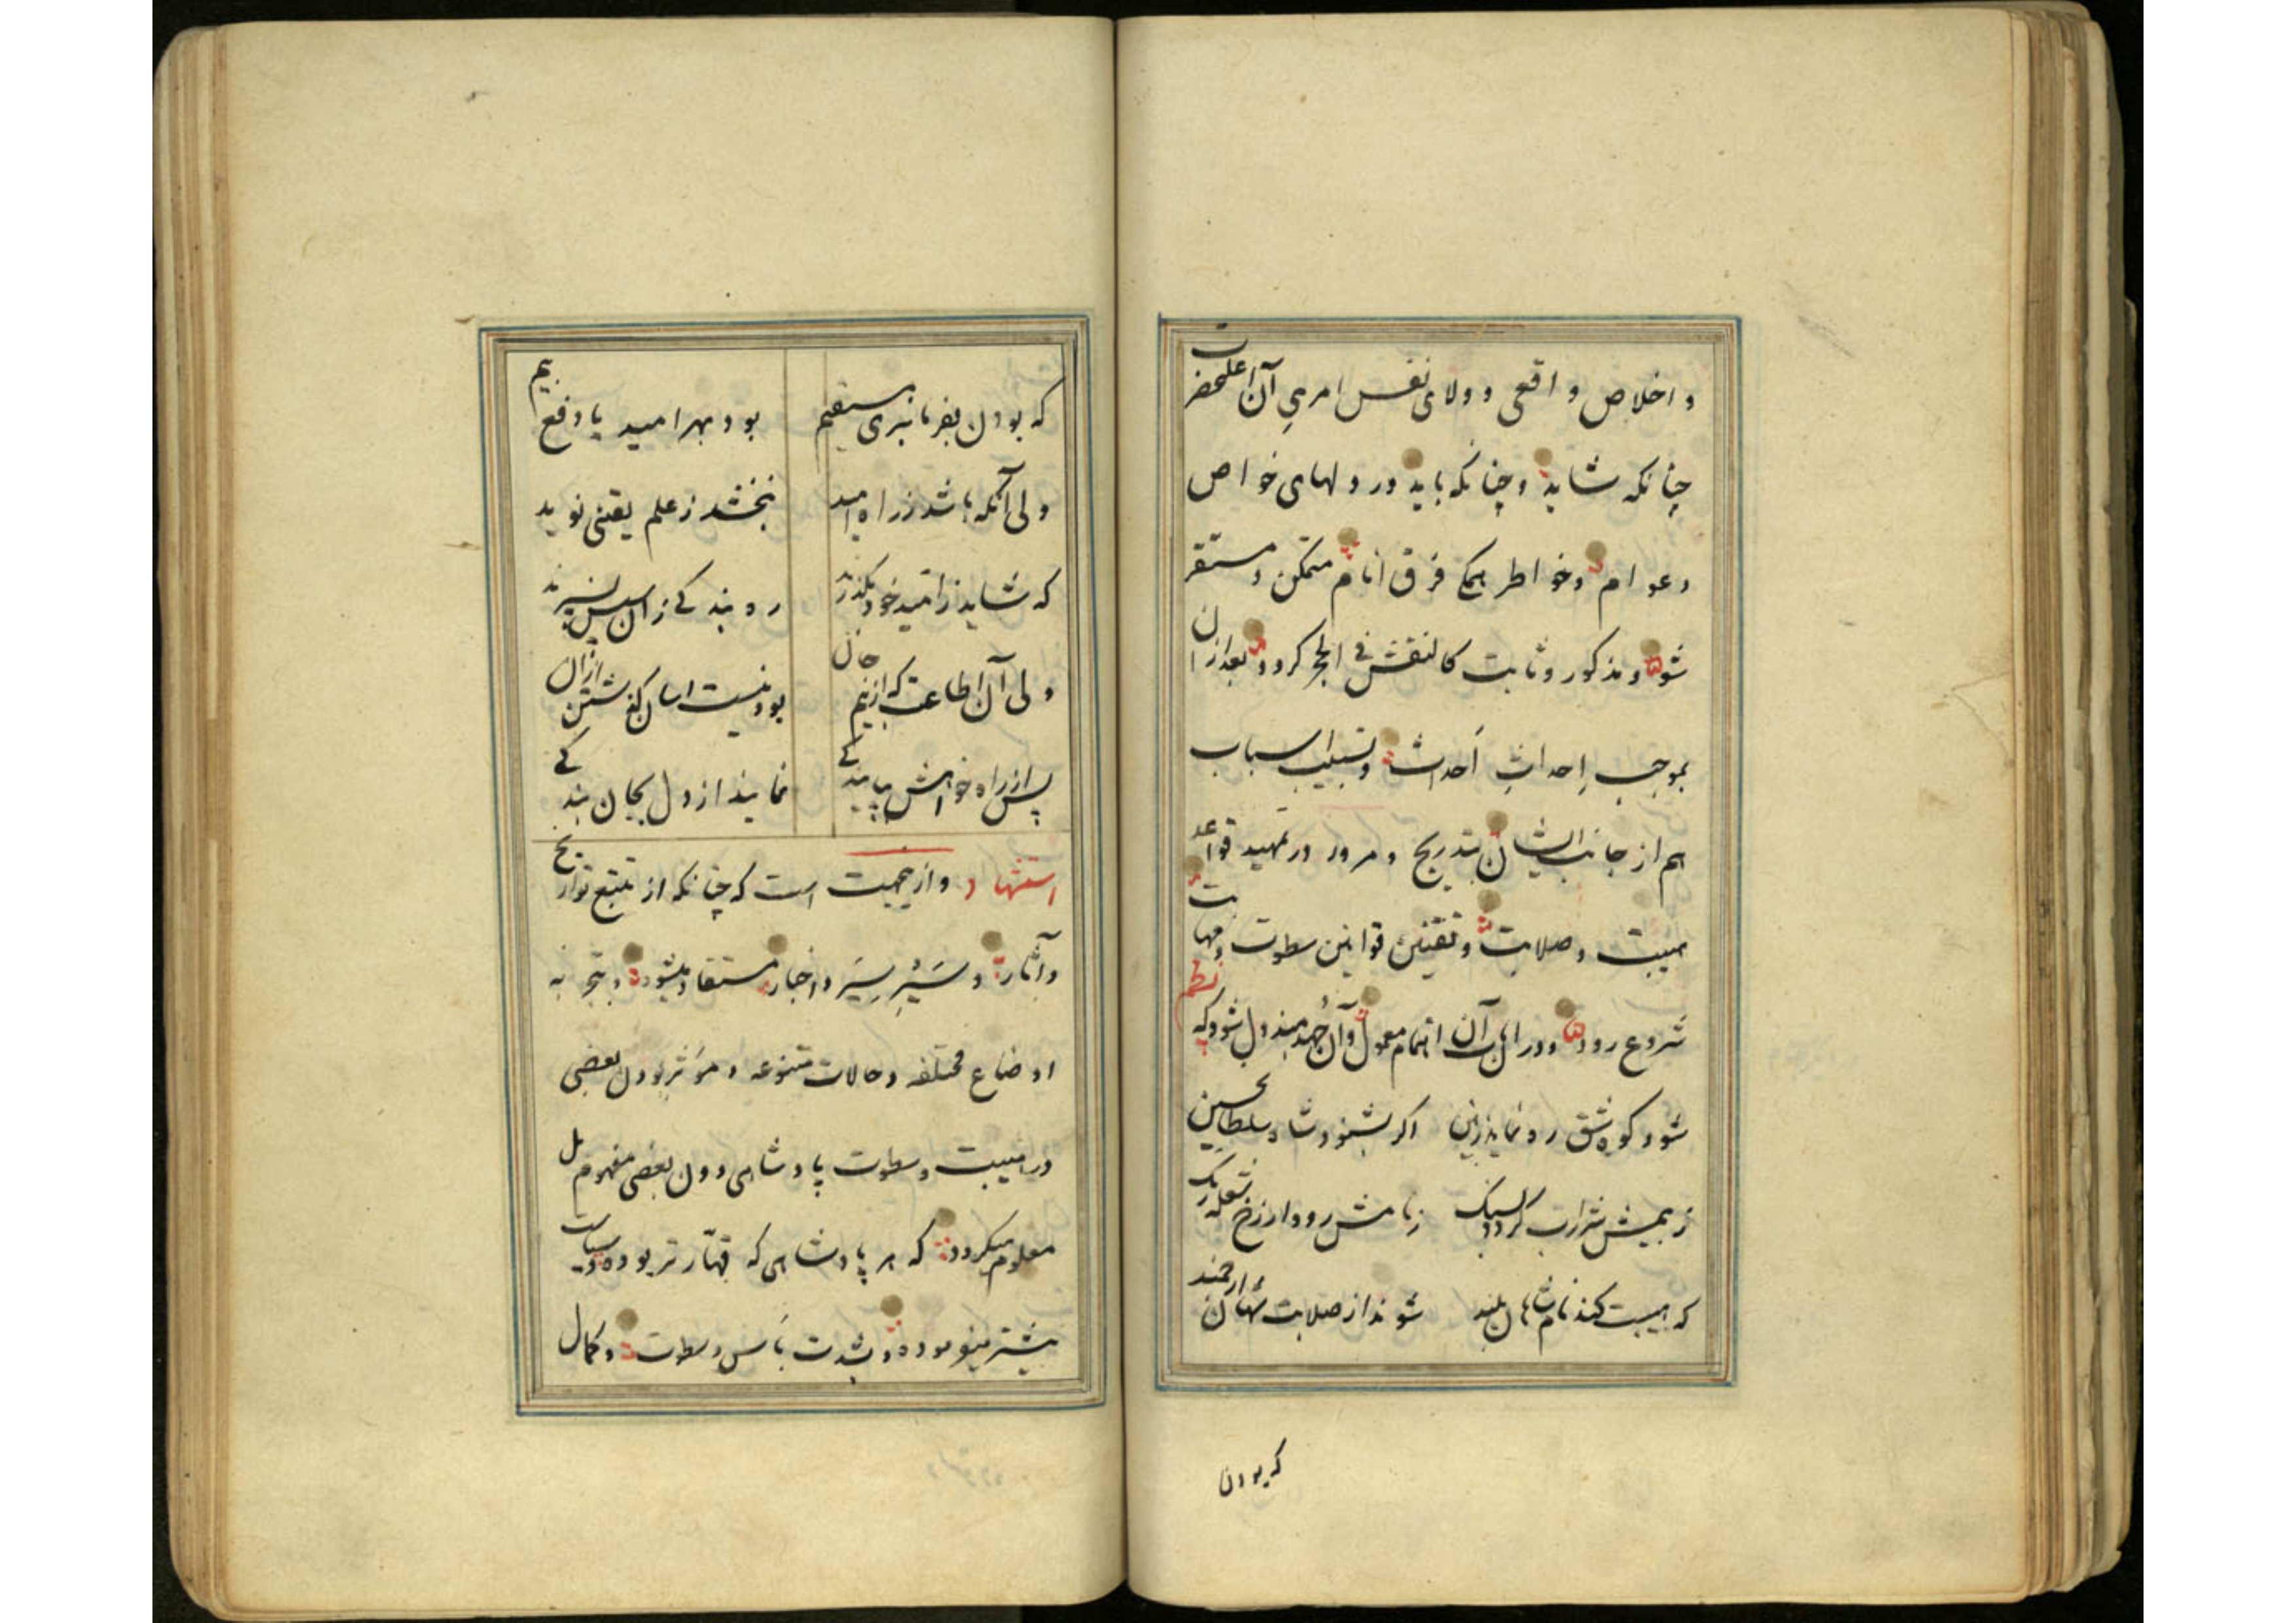 و اخلاص واقعی و ولای نفس امریِ آن اعلیحضرت
چنانکه شاید و چنانکه باید در دلهای خواص
و عوام و خواطر همکی فرق انام متمکن و مستقر
شود و مذکور و ثابت کالنقش فی الحجر کردد بعد از آن
بموجب اِحداثِ اَحداث و تسبیب اسباب
هم از جانب ایشان بتدریج و مرور در تمهید قواعد
هیبت و صلابت و تقنین قوانین سطوت و مهابت
شروع رود و در آن اهتمام معمول و آن جُهد مبذول شود که نظم
شود کوه شق رو نماید زنین اکر بشنود شاد سلطان حسین
ز بیمش شرارت کردد سنک زبامش رود از رخ شعله رنک
که هیبت کند نام شاهان بلند شوند از صلابت شهان ارجمند
که بودن
که بودن بفرمانبری مستقیم بود بهر امید یا دفع بیم
ولی آنکه باشد ز راه امید نبخشد ز علم یقینی نوید
که شاید ز امید خود بکذرند ره بندکی زان سپس نسپرند
ولی آن اطاعت که از بیم جان بود نیست اسان کذشتن ازان
پس از راه خواهش بپایند کی نمایند از دل بجان بندکی
استشهاد و ازینجهت است که چنانکه از تتبع تواریخ
و آثار و سَیْرِ سِیَر و اخبار مستفاد میشود و بتجربه
اوضاع مختلفه و حالات متنوعه و مؤثر بودن بعضی
در هیبت و سطوت پادشاهی دون بعضی مفهوم بل
معلوم میکردد که هر پادشاهی که قهّارتر بوده و سیاست
بیشتر مینموده و بشدت بَاس و سطوت و کمال